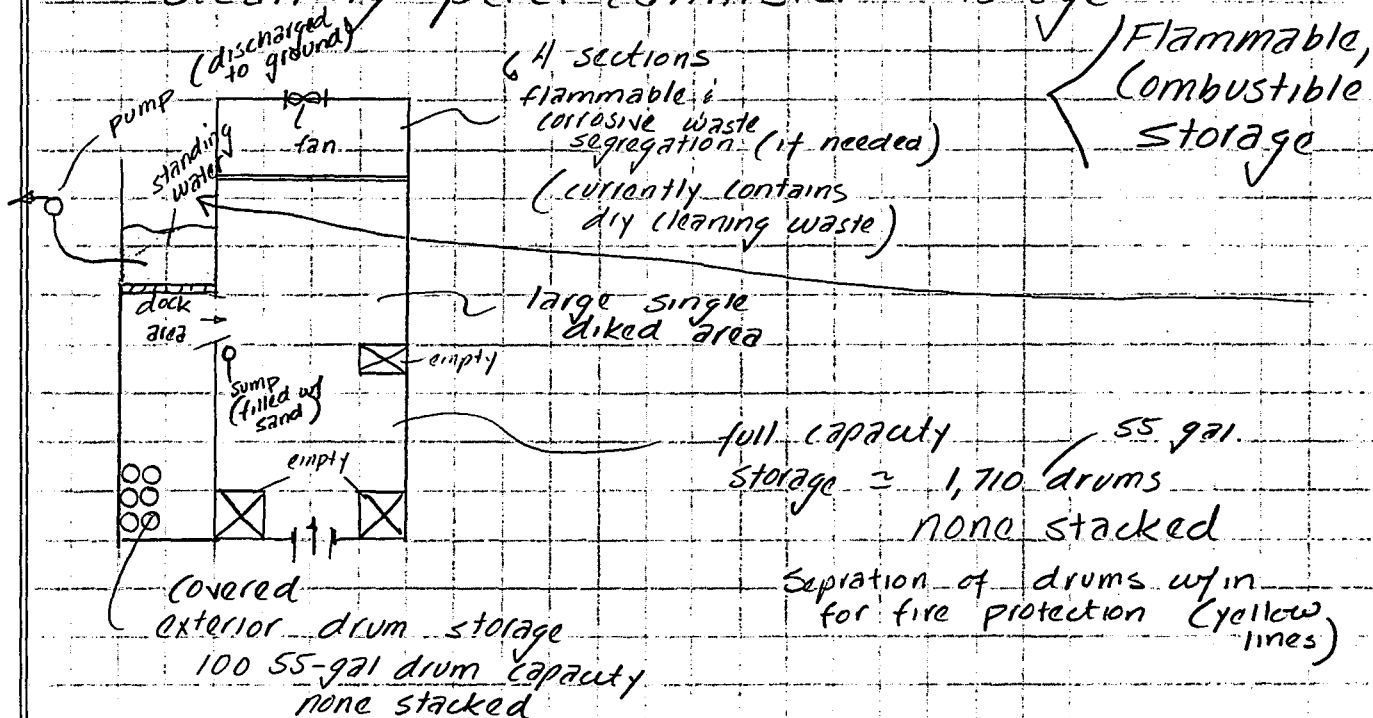 (discharged
to ground)
pump
standing
water
fan
4 sections
flammable &
corrosive waste
segregation (if needed)
(currently contains
dry cleaning waste)
Flammable,
Combustible
Storage
dock
area
large single
diked area
empty
sump
(filled w/
sand)
empty
full capacity
storage ≃ 1,710 drums
55 gal.
none stacked
Sepration of drums w/in
for fire protection (yellow
lines)
Covered
exterior drum storage
100 55-gal drum capacity
none stacked